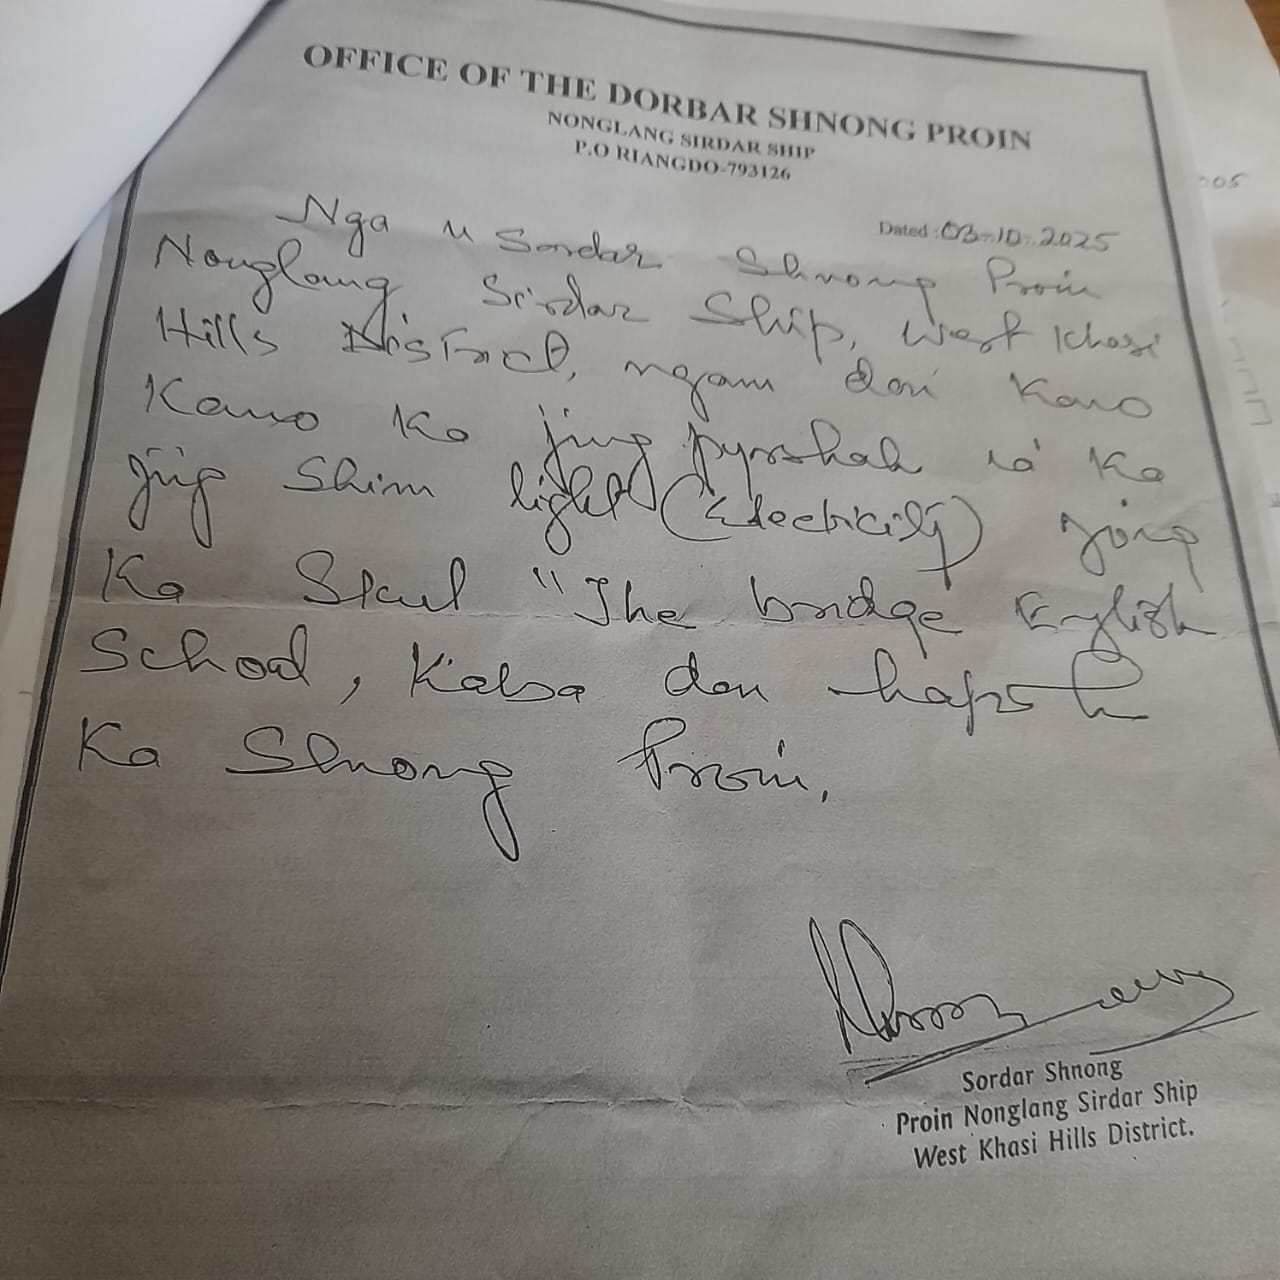 OFFICE OF THE DORBAR SHNONG PROIN
NONGLANG SIRDAR SHIP
P.O RIANGDO-793126
Dated : 03-10-2025
Nga u Sordar Shnong Proin
Nonglang Sirdar Ship, West Khasi
Hills District, ngam don kano
kano ka jing pyrshah ïa ka
jing shim light (Electricity) jong
ka Skul "The bridge English
School, kaba don hapoh
ka Shnong Proin.
Sordar Shnong
Proin Nonglang Sirdar Ship
West Khasi Hills District.